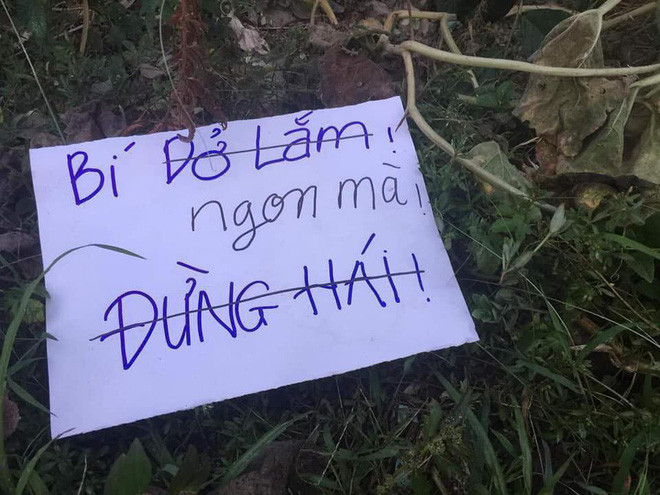 Bí Dở Lắm!
ngon mà!
ĐỪNG HÁI!